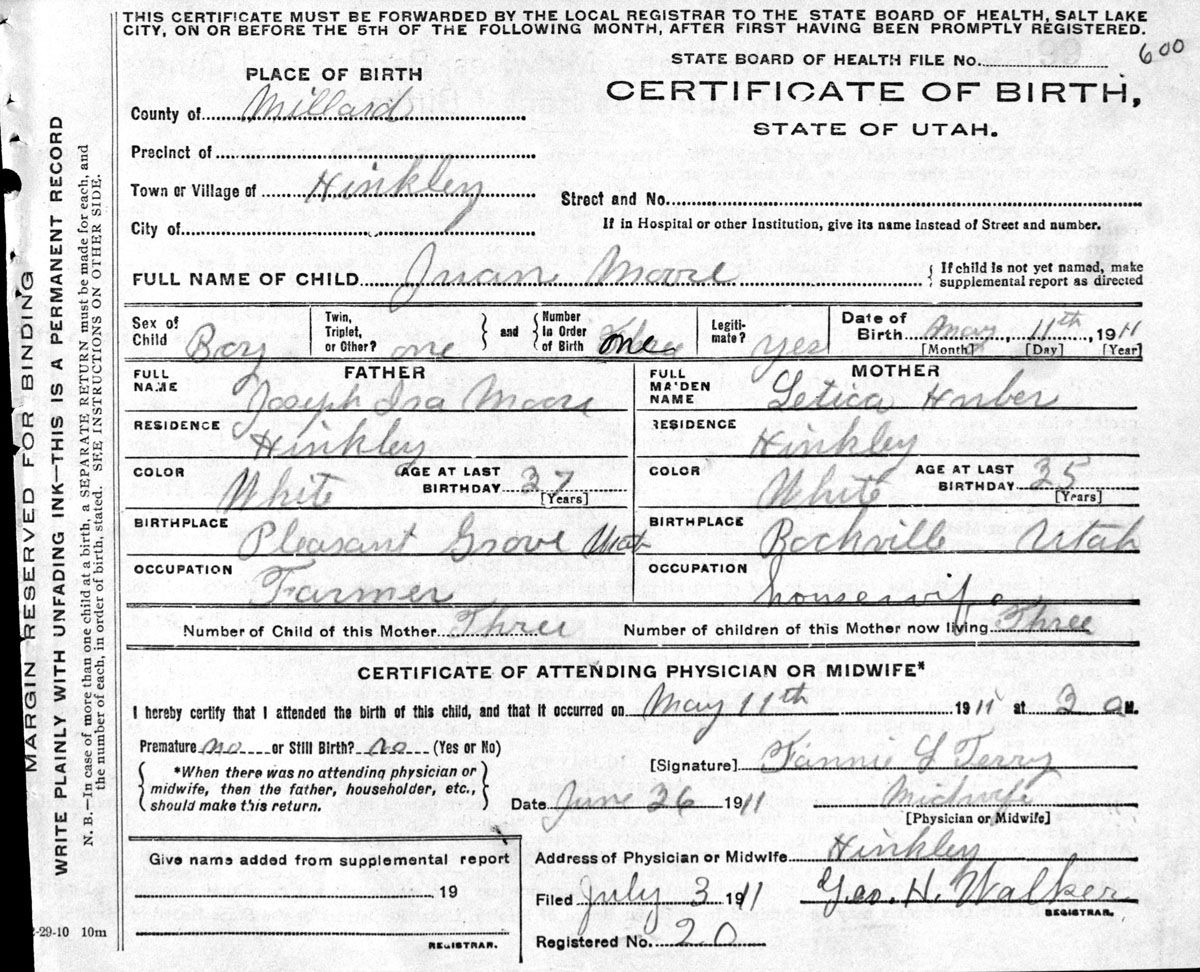 THIS CERTIFICATE MUST BE FORWARDED BY THE LOCAL REGISTRAR TO THE STATE BOARD OF HEALTH, SALT LAKE
CITY, ON OR BEFORE THE 5TH OF THE FOLLOWING MONTH, AFTER FIRST HAVING BEEN PROMPTLY REGISTERED.
STATE BOARD OF HEALTH FILE No. 600
PLACE OF BIRTH
CERTIFICATE OF BIRTH,
STATE OF UTAH.
County of Millard
Precinct of
Town or Village of Hinkley
Street and No.
City of
If in Hospital or other Institution, give its name instead of Street and number.
FULL NAME OF CHILD Juan Moore { If child is not yet named, make supplemental report as directed
Sex of Child Boy Twin, Triplet, or Other? one } and { Number in Order of Birth one Legitimate? yes Date of Birth May 11th, 1911
[Month] [Day] [Year]
FATHER
FULL NAME Joseph Ira Moore
RESIDENCE Hinkley
COLOR White AGE AT LAST BIRTHDAY 37 [Years]
BIRTHPLACE Pleasant Grove Utah
OCCUPATION Farmer
MOTHER
FULL MAIDEN NAME Letica Huber
RESIDENCE Hinkley
COLOR White AGE AT LAST BIRTHDAY 35 [Years]
BIRTHPLACE Rockville Utah
OCCUPATION housewife
Number of Child of this Mother Three Number of children of this Mother now living Three
CERTIFICATE OF ATTENDING PHYSICIAN OR MIDWIFE*
I hereby certify that I attended the birth of this child, and that it occurred on May 11th 1911 at 3 a M.
Premature no or Still Birth? no (Yes or No)
{ *When there was no attending physician or
midwife, then the father, householder, etc.,
should make this return. }
[Signature] Fannie L Terry
Date June 26 1911 Midwife
[Physician or Midwife]
Give name added from supplemental report
19
REGISTRAR.
Address of Physician or Midwife Hinkley
Filed July 3 1911 Geo. H. Walker
REGISTRAR.
Registered No. 20
MARGIN RESERVED FOR BINDING
WRITE PLAINLY WITH UNFADING INK—THIS IS A PERMANENT RECORD
N. B.—In case of more than one child at a birth, a SEPARATE RETURN must be made for each, and
the number of each, in order of birth, stated. SEE INSTRUCTIONS ON OTHER SIDE.
-29-10 10m